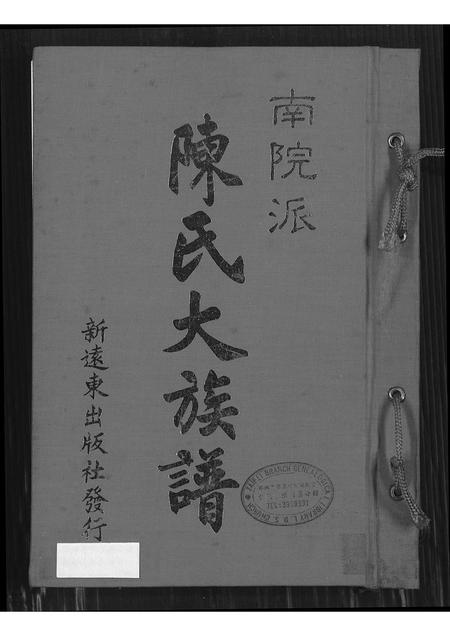 南院派
陳氏大族譜
新遠東出版社發行
BRANCH GENEALOGICAL
LIBRARY L.D.S. CHURCH